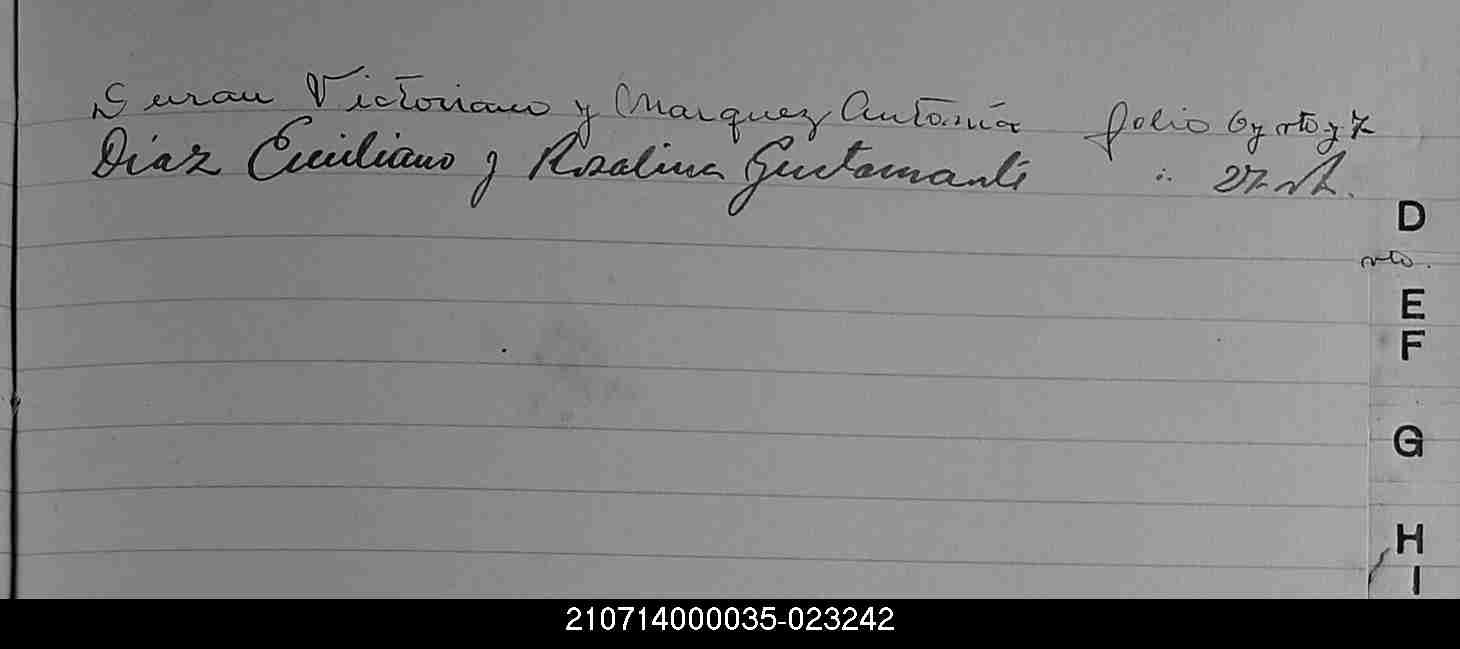 Duran Victoriano y Marquez Antonia folio 6 y vto y 7
Díaz Emiliano y Rosalina 27 vt.
D
vto.
E
F
G
H
I
210714000035-023242